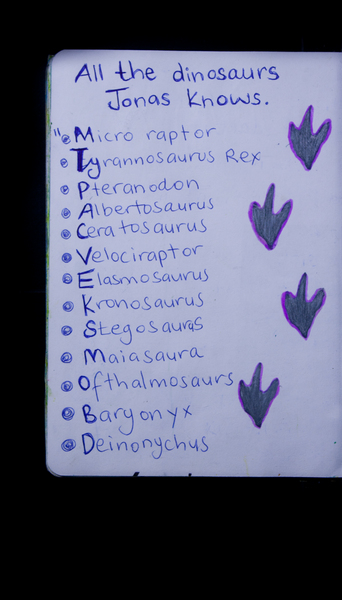 All the dinosaurs
Jonas knows.
Microraptor
Tyrannosaurus Rex
Pteranodon
Albertosaurus
Ceratosaurus
Velociraptor
Elasmosaurus
Kronosaurus
Stegosauras
Maiasaura
Ofthalmosaurs
Baryonyx
Deinonychus